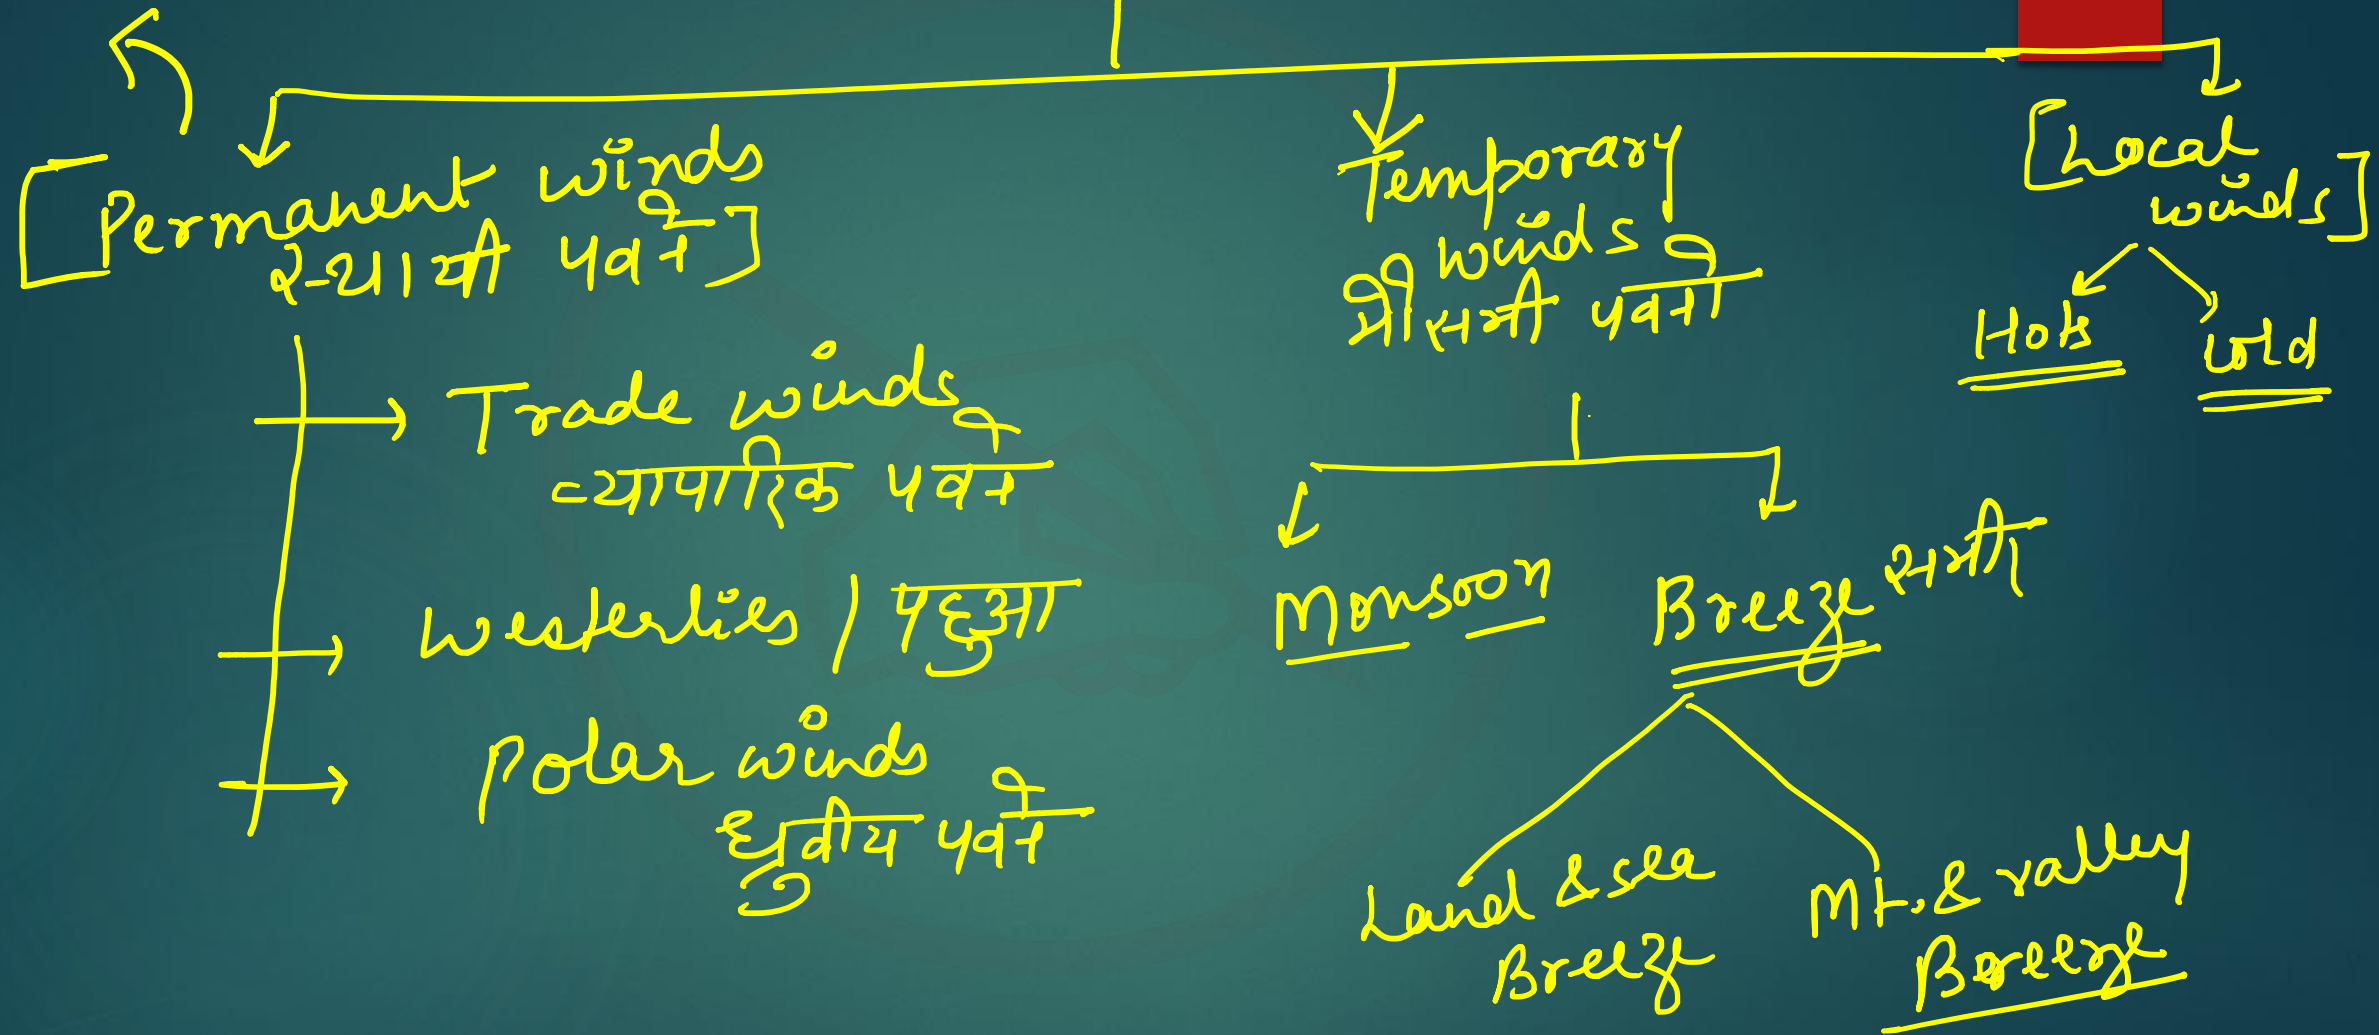 Permanent winds
स्थायी पवनें
Trade winds
व्यापारिक पवनें
Westerlies / पछुआ
Polar winds
ध्रुवीय पवनें
Temporary
winds
मौसमी पवनें
Monsoon
Breeze समीर
Land & sea
Breeze
Mt. & valley
Breeze
[Local
winds]
Hot
Cold